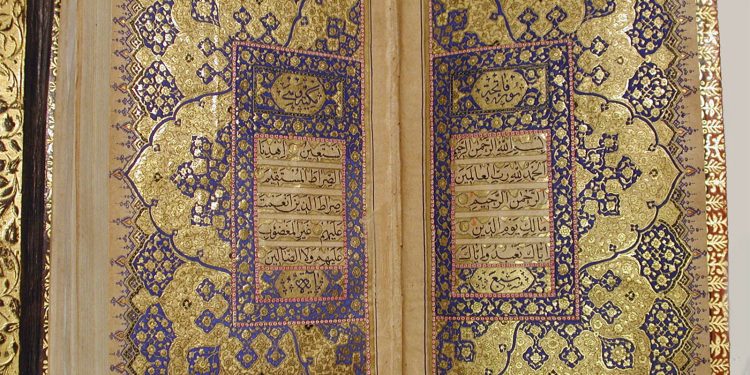 سورة فاتحة
بسم الله الرحمن الرحيم
الحمد لله رب العالمين
الرحمن الرحيم
مالك يوم الدين
اياك نعبد واياك
نستعين اهدنا
الصراط المستقيم
صراط الذين انعمت
عليهم غير المغضوب
عليهم ولا الضالين